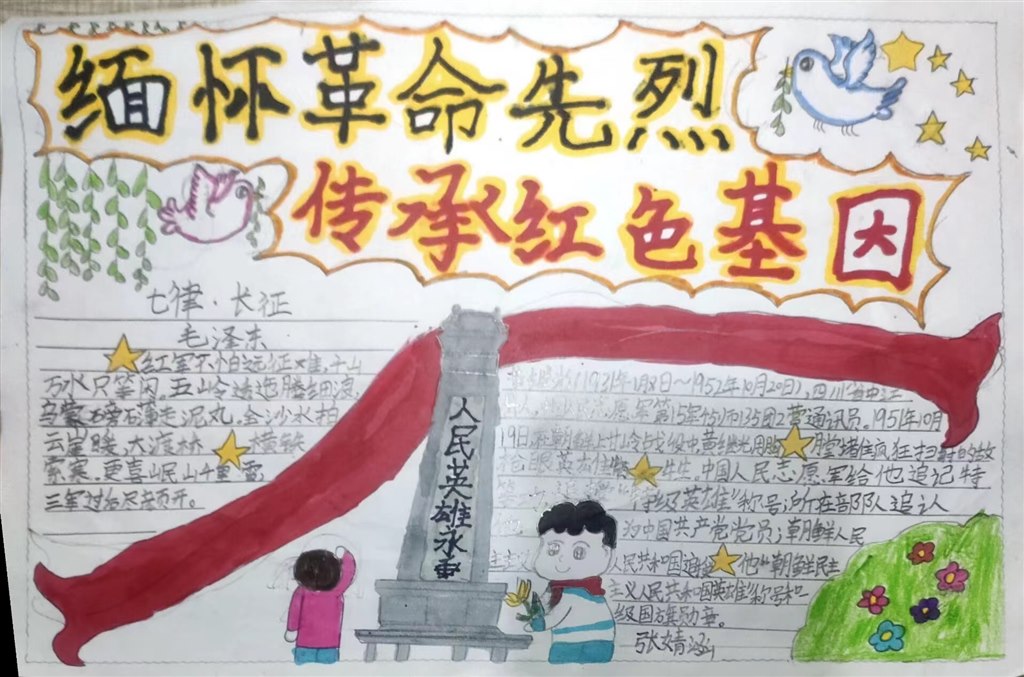 缅怀革命先烈
传承红色基因
七律·长征
毛泽东
红军不怕远征难,千山
万水只等闲。五岭逶迤腾细浪,
乌蒙磅礴走泥丸。金沙水拍
云崖暖,大渡 横铁
索寒。更喜岷山千里雪,
三军过后尽开颜。
人民英雄永垂
(1931年1月8日~1952年10月20日),四川省中江
人,志愿军第15军45师135团2营通讯员。1951年10月
19日,在朝鲜上甘岭战役中黄继光用胸膛堵住疯狂扫射的敌
枪眼英勇 牲。中国人民志愿军给他追记特
特级英雄"称号;所在部队追认
为中国共产党党员;朝鲜人民
主主义人民共和国追 他"朝鲜民主
主义人民共和国英雄"称号和一
级国旗勋章。
张婧涵